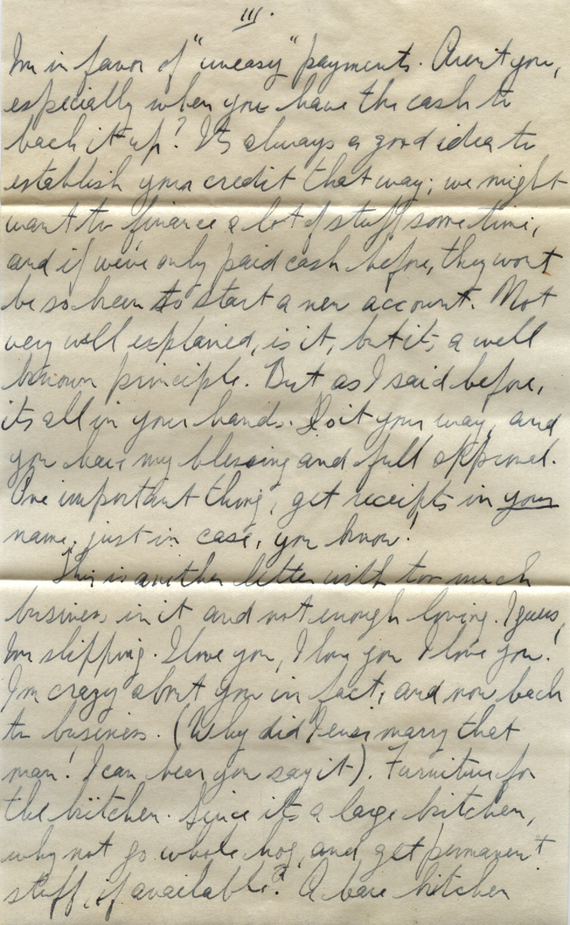 III.
I'm in favor of "uneasy" payments. Aren't you,
especially when you have the cash to
back it up? It's always a good idea to
establish your credit that way; we might
want to finance a lot of stuff some time,
and if we've only paid cash before, they won't
be so keen to start a new account. Not
very well explained, is it, but it's a well
known principle. But as I said before,
it's all in your hands. Do it your way, and
you have my blessing and full approval.
One important thing, get receipts in your
name, just in case, you know!
This is another letter with too much
business in it and not enough loving. I guess,
I'm slipping. I love you, I love you I love you!
I'm crazy about you in fact, and now back
to business. (Why did I ever marry that
man! I can hear you say it). Furniture for
the kitchen. Since it's a large kitchen,
why not go whole hog, and get permanent
stuff, if available? A bare kitchen